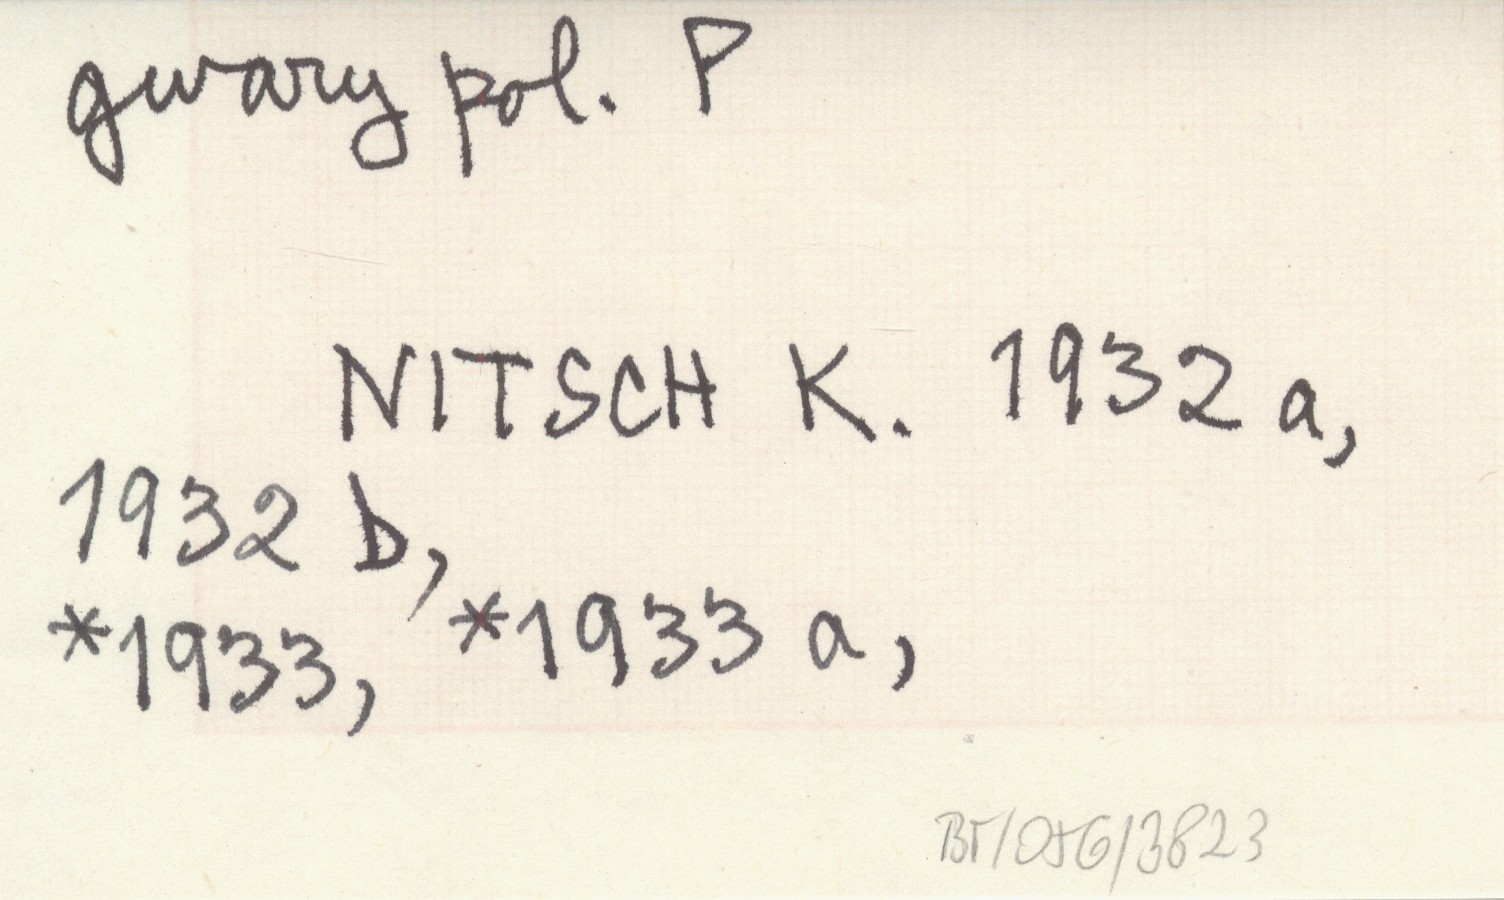 gwary pol. P
NITSCH K. 1932 a,
1932 b,
*1933, *1933 a,
BT/OJG/3823